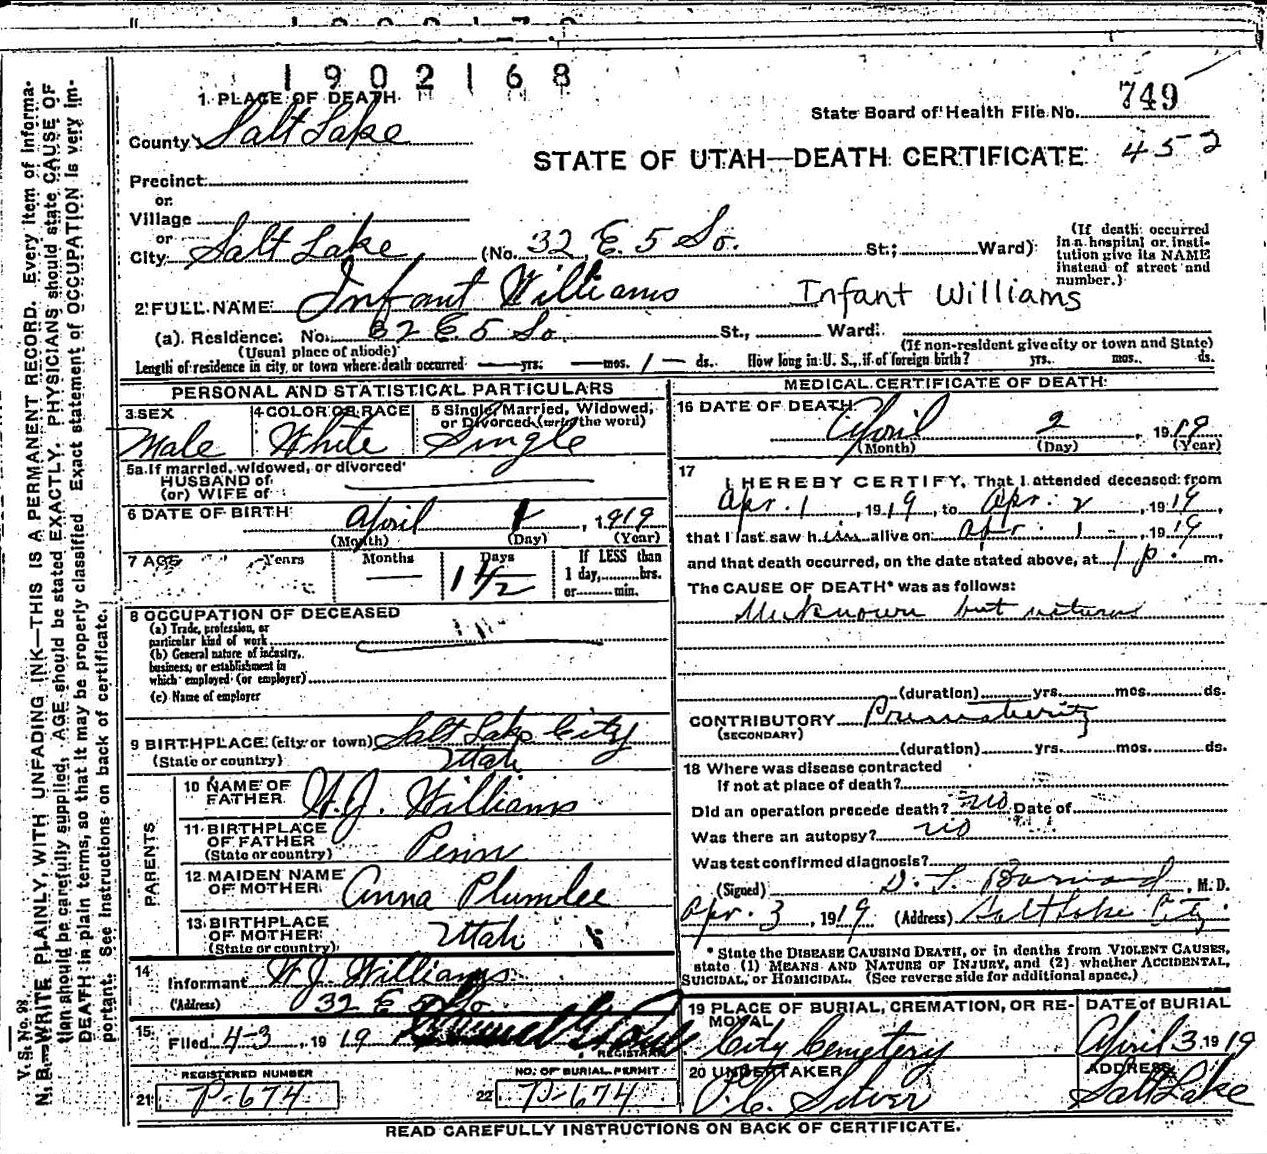 1902168
1 PLACE OF DEATH
State Board of Health File No. 749
County Salt Lake
STATE OF UTAH—DEATH CERTIFICATE 452
Precinct
or
Village
or
City Salt Lake (No. 32 E. 5 So. St.; Ward)
(If death occurred in a hospital or institution give its NAME instead of street and number.)
2 FULL NAME Infant Williams Infant Williams
(a) Residence. No. 32 E. 5 So. St., Ward.
(Usual place of abode) (If non-resident give city or town and State)
Length of residence in city or town where death occurred — yrs. — mos. 1 — ds. How long in U. S., if of foreign birth? yrs. mos. ds.
PERSONAL AND STATISTICAL PARTICULARS
3 SEX 4 COLOR OR RACE 5 Single, Married, Widowed, or Divorced (write the word)
Male White Single
5a If married, widowed, or divorced
HUSBAND of
(or) WIFE of
6 DATE OF BIRTH April 1, 1919
(Month) (Day) (Year)
7 AGE Years Months Days If LESS than
— 1 1/2 1 day, hrs.
or min.
8 OCCUPATION OF DECEASED
(a) Trade, profession, or
particular kind of work
(b) General nature of industry,
business, or establishment in
which employed (or employer)
(c) Name of employer
9 BIRTHPLACE (city or town) Salt Lake City
(State or country) Utah
PARENTS
10 NAME OF FATHER W. J. Williams
11 BIRTHPLACE OF FATHER (State or country) Penn
12 MAIDEN NAME OF MOTHER Anna Plumlee
13 BIRTHPLACE OF MOTHER (State or country) Utah
14 Informant W. J. Williams
(Address) 32 E 5 So.
15 Filed 4-3, 1919
REGISTRAR
REGISTERED NUMBER NO. OF BURIAL PERMIT
21 P-674 22 P-674
MEDICAL CERTIFICATE OF DEATH
16 DATE OF DEATH April 2, 1919
(Month) (Day) (Year)
17 I HEREBY CERTIFY, That I attended deceased from
Apr. 1, 1919, to Apr. 2, 1919,
that I last saw him alive on Apr. 1 -, 1919
and that death occurred, on the date stated above, at 1 p. m.
The CAUSE OF DEATH* was as follows:
Unknown but natural
(duration) yrs. mos. ds.
CONTRIBUTORY Prematurity
(SECONDARY)
(duration) yrs. mos. ds.
18 Where was disease contracted
If not at place of death?
Did an operation precede death? no Date of
Was there an autopsy? no
Was test confirmed diagnosis?
(Signed) Barnard, M. D.
Apr. 3, 1919 (Address) Salt Lake City
* State the DISEASE CAUSING DEATH, or in deaths from VIOLENT CAUSES,
state (1) MEANS AND NATURE OF INJURY, and (2) whether ACCIDENTAL,
SUICIDAL, or HOMICIDAL. (See reverse side for additional space.)
19 PLACE OF BURIAL, CREMATION, OR REMOVAL DATE OF BURIAL
City Cemetery April 3 1919
20 UNDERTAKER ADDRESS
Salt Lake
READ CAREFULLY INSTRUCTIONS ON BACK OF CERTIFICATE.
V. S. No. 98
N. B.—WRITE PLAINLY, WITH UNFADING INK—THIS IS A PERMANENT RECORD. Every item of information should be carefully supplied. AGE should be stated EXACTLY. PHYSICIANS should state CAUSE OF DEATH in plain terms, so that it may be properly classified. Exact statement of OCCUPATION is very important. See Instructions on back of certificate.